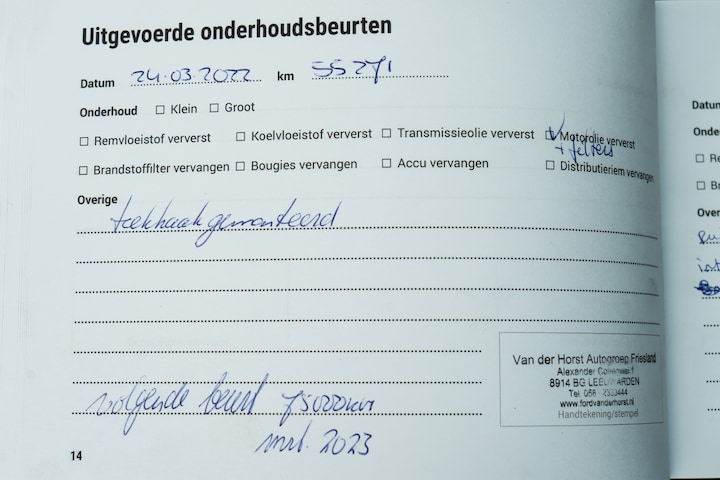 Uitgevoerde onderhoudsbeurten
Datum 24-03-2022 km 55271
Onderhoud ☐ Klein ☐ Groot
☐ Remvloeistof ververst ☐ Koelvloeistof ververst ☐ Transmissieolie ververst ☑ Motorolie ververst
+ filters
☐ Brandstoffilter vervangen ☐ Bougies vervangen ☐ Accu vervangen ☐ Distributieriem vervangen
Overige
trekhaak gemonteerd
Van der Horst Autogroep Friesland
Alexander
8914 BG LEEUWARDEN
Tel. 058 2333444
www.fordvanderhorst.nl
Handtekening/stempel
volgende beurt 75000km
mrt. 2023
14
Datum
Onde
☐ Re
☐ Br
Over